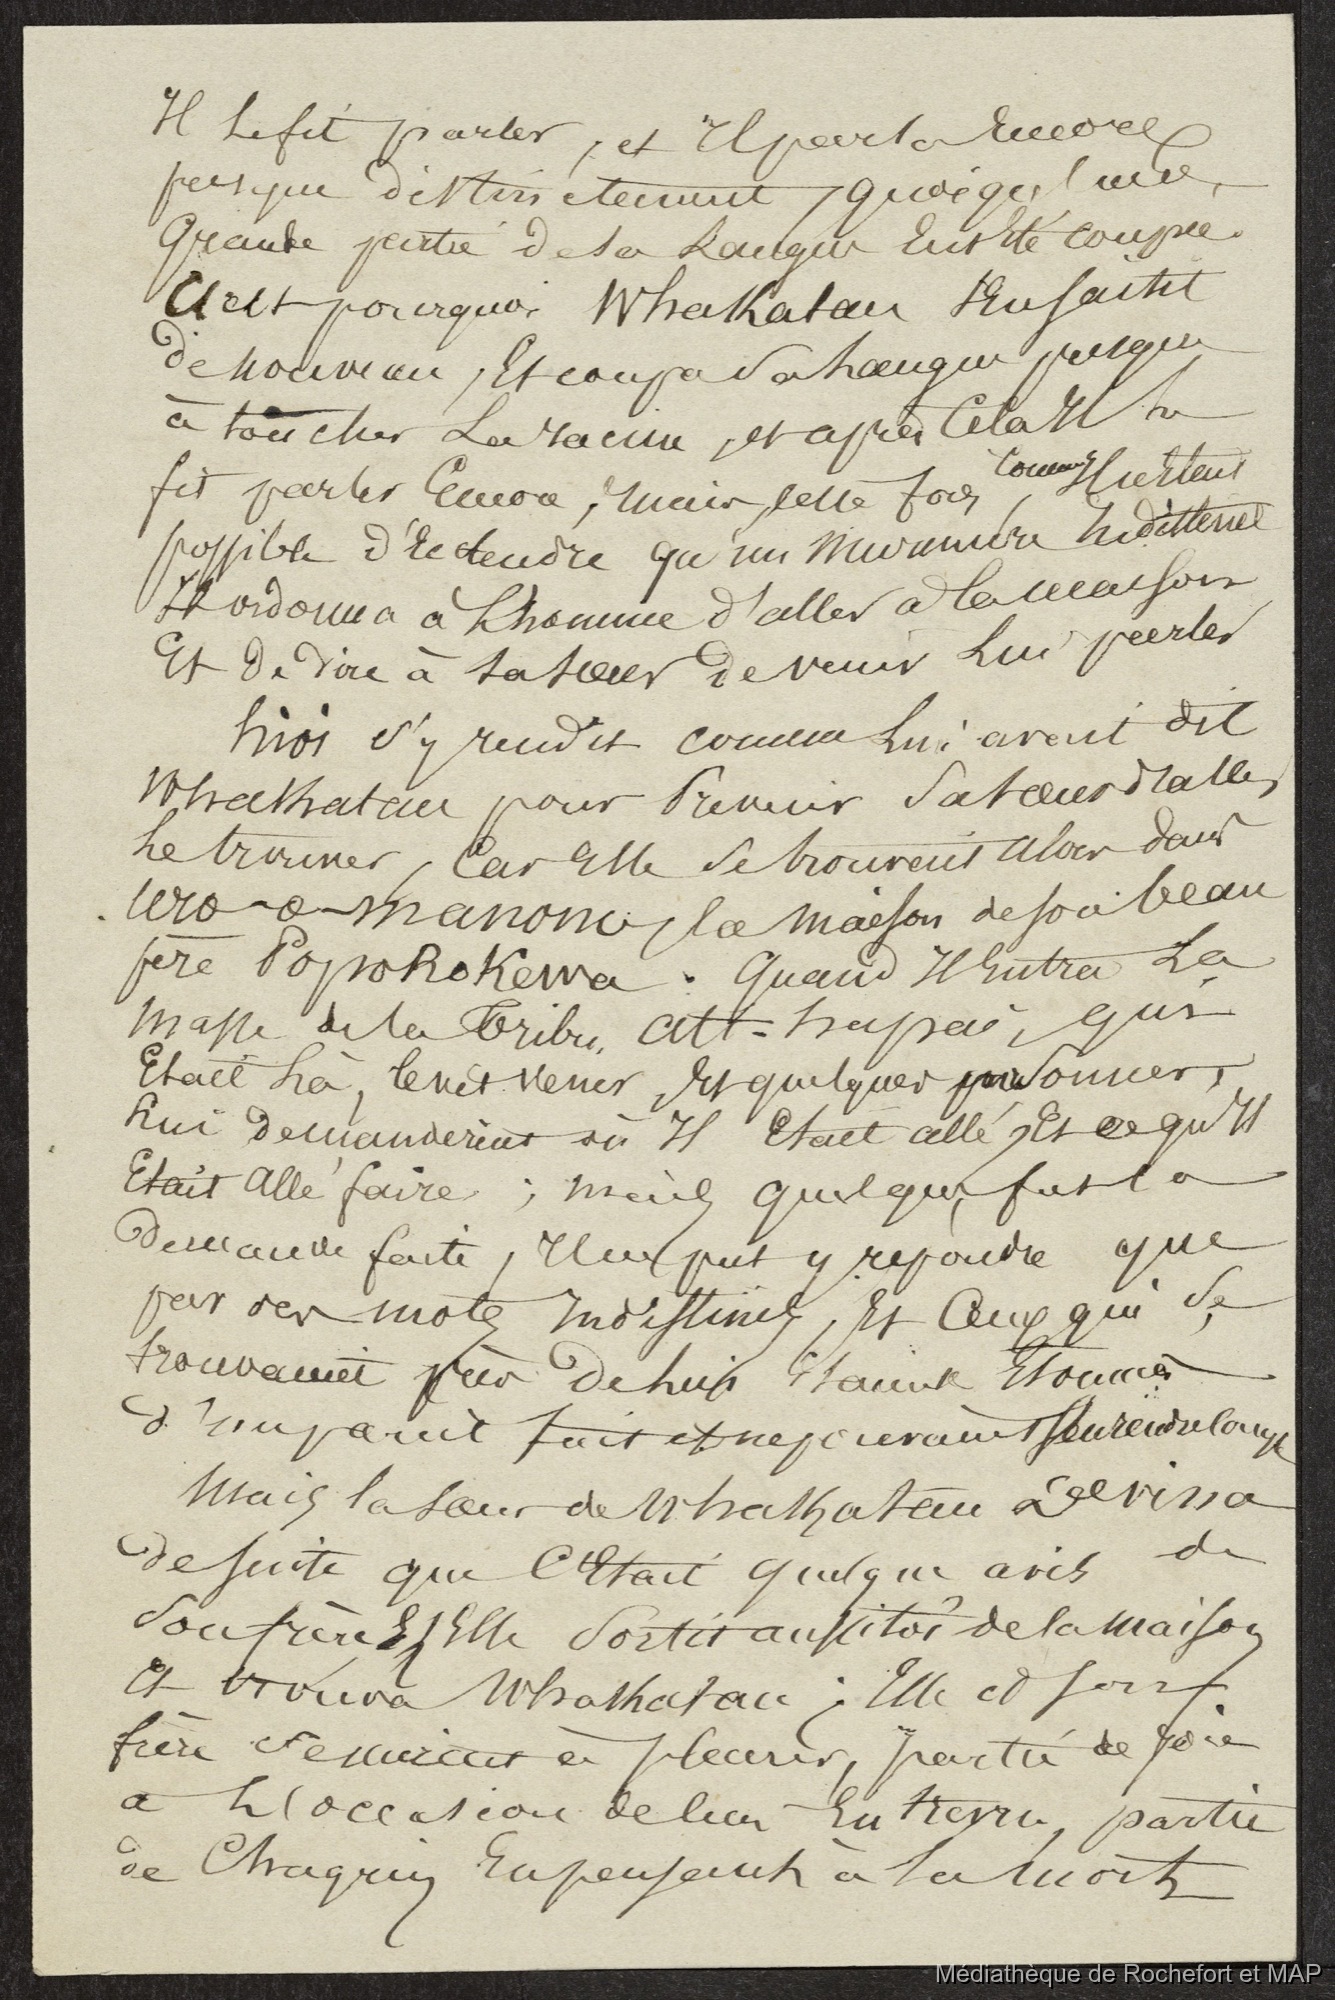 Il le fit parler, et Il parla Encore
presque distinctement, quoiqu'une
Grande partie de sa Langue Eut Eté coupée.
C'est pourquoi Whakatau s'En saisit
de nouveau, Et coupa sa Langue presque
à toucher La racine, et après Cela Il le
fit parler Encore, mais cette fois comme Il n'Etait
possible d'Entendre qu'un Murmure Indistinct
Il ordonna à L'homme d'aller à la maison
Et de dire à sa sœur de venir Lui parler
Hioi s'y rendit comme Lui avait dit
Whakatau pour Prévenir sa sœur d'aller
Le trouver, Car Elle se trouvait alors dans
Uro-o-manono, la maison de son beau
père Popohokewa. Quand Il Entra La
masse de la Tribu Ati-hapai, qui
Etait Là, le vit venir, Et quelques personnes,
Lui demandèrent où Il Etait allé, Et ce qu'Il
Etait allé faire ; mais quelque fut la
Demande faite, Il ne put y répondre que
par des mots Indistincts, Et Ceux qui se
trouvaient près de lui Etaient Etonnés
d'un pareil fait et ne pouvaient s'en rendre compte
Mais la sœur de Whakatau Devina
de suite que C'Etait quelque avis de
son frère Et Elle sortit aussitôt de la maison
Et trouva Whakatau ; Elle et son
frère se mirent à pleurer, partie de joie
a L'occasion de leur Entrevue, partie
de Chagrin En pensant à la mort
Médiathèque de Rochefort et MAP